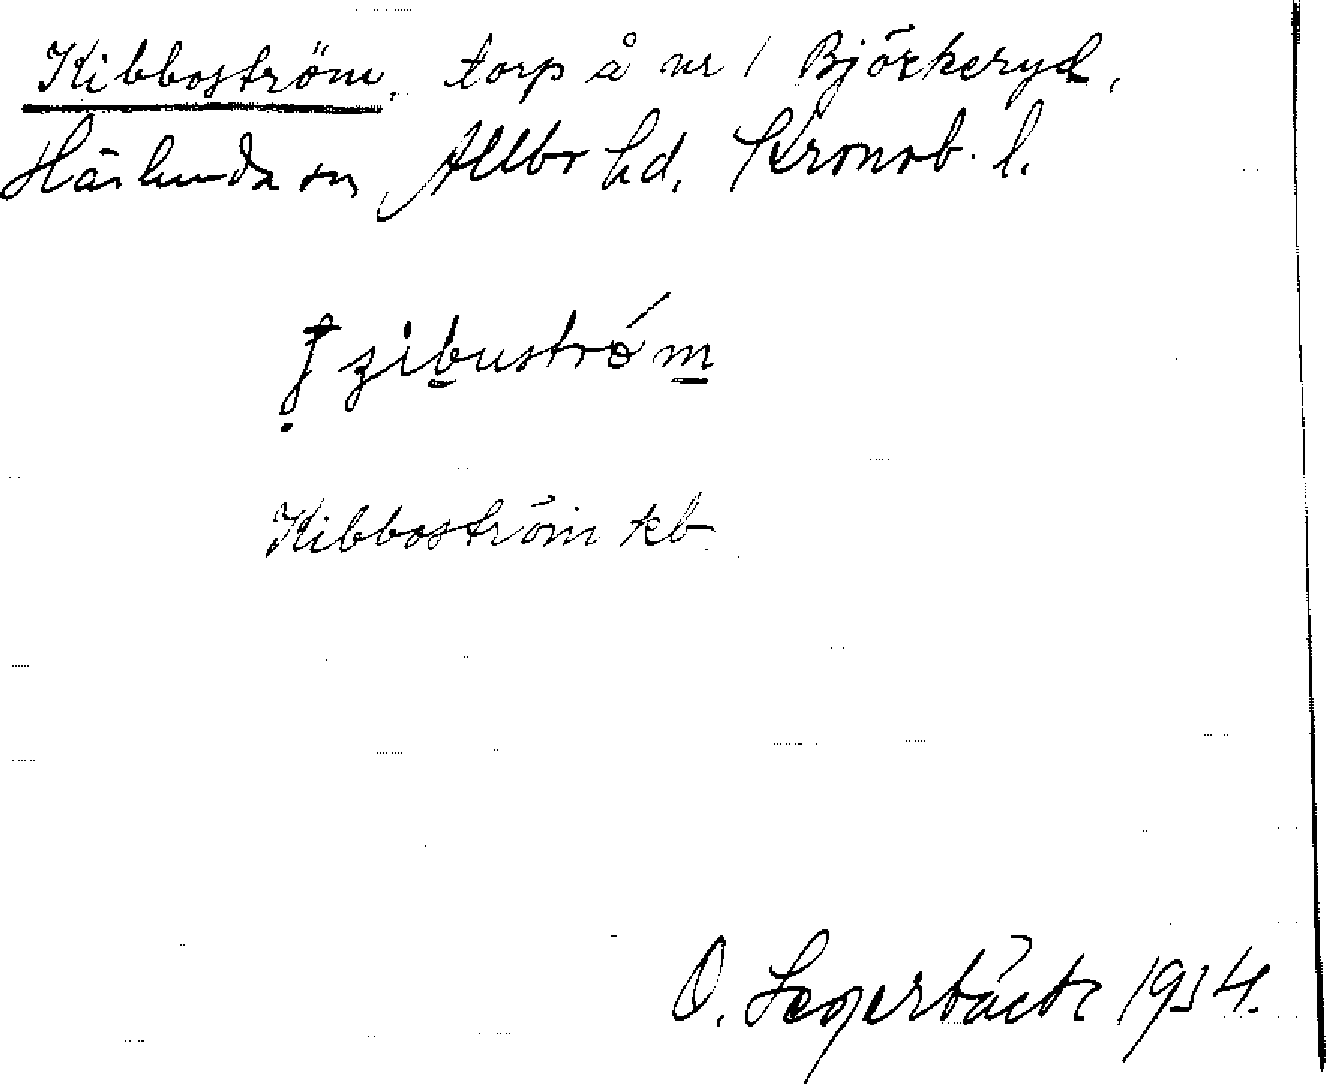 Kibboström, torp å nr 1 Björkeryd,
Härlunda sn, Allbo hd, Kronob. l.
zibuström
Kibboström kb
O. Segerbäck 1934.